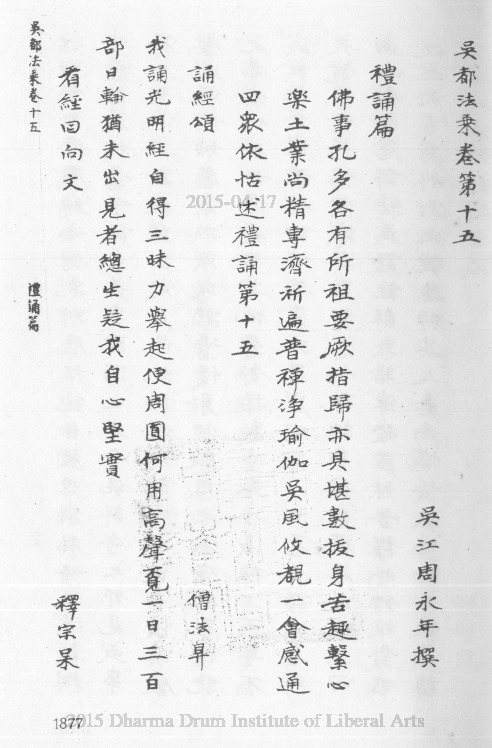 吳都法乘卷第十五
吳江周永年撰
禮誦篇
佛事孔多各有所祖要厥指歸亦具堪數拔身苦趣繫心
樂土業尚精專濟祈遍普禪淨瑜伽吳風攸覩一會感通
四衆依怙述禮誦第十五
誦經頌
僧法昇
我誦光明經自得三昧力舉起便周圓何用高聲覔一日三百
部日輪猶未出見者總生疑我自心堅實
看經回向文
釋宗杲
吳都法乘卷十五
禮誦篇
1877
2015-04-17
©2015 Dharma Drum Institute of Liberal Arts